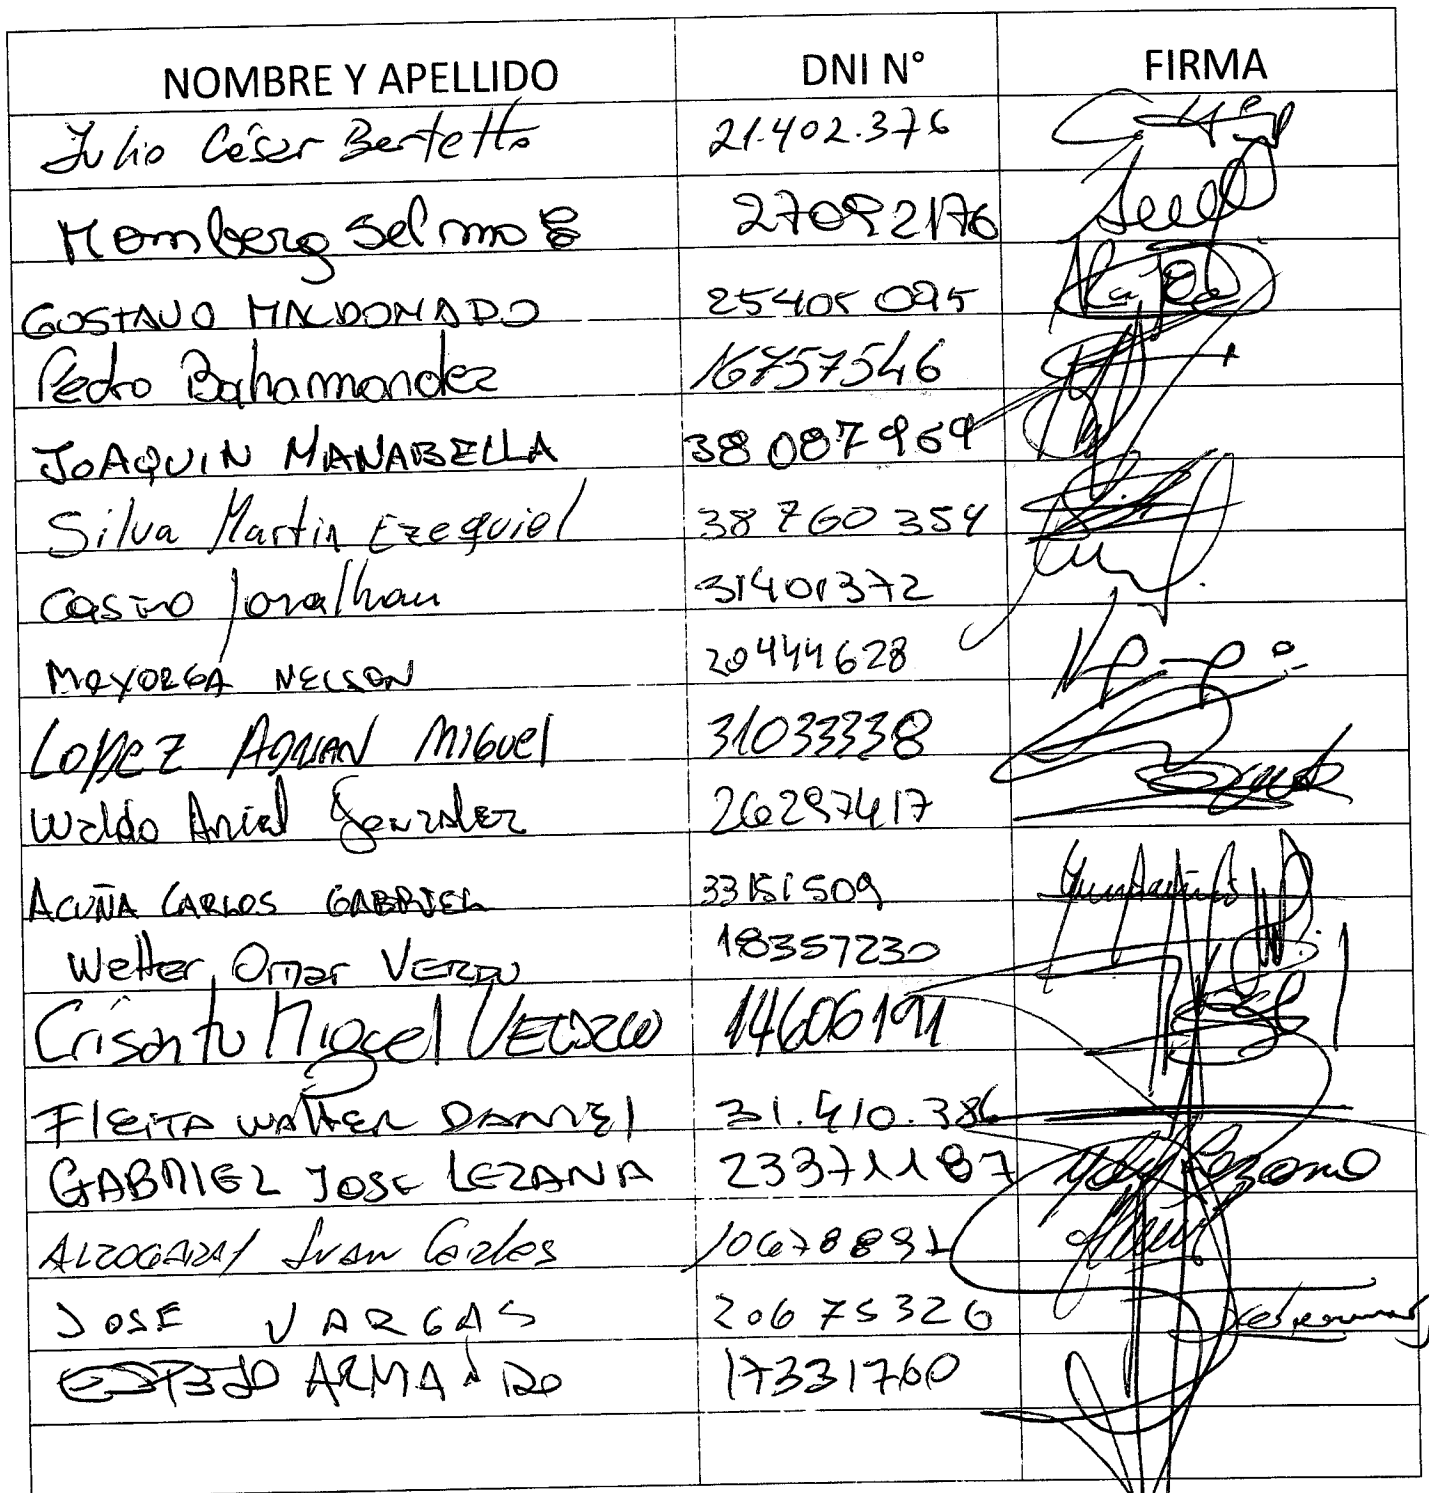 NOMBRE Y APELLIDO DNI N° FIRMA
Julio César Bertetto 21.402.376
Homberg Selmo 27092176
GUSTAVO MALDONADO 25405095
Pedro Bahamondez 16757546
JOAQUIN MANABELLA 38087969
Silva Martin Ezequiel 38760354
Castro Jonathan 31401372
MAYORGA NELSON 20444628
LOPEZ ADRIAN MIGUEL 31033338
Waldo Ariel Gonzalez 26297417
ACUÑA CARLOS GABRIEL 33151509
Walter Omar 18357230
Crisanto Miguel 14606191
FLEITA WALTER DANIEL 31.410.386
GABRIEL JOSE LEZANA 23371187
ALZOGARAY Juan Carlos 10678891
JOSE VARGAS 20675326
ESPEJO ARMANDO 17331760